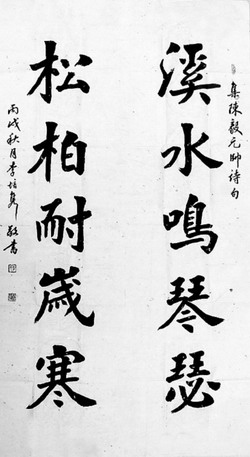 集陳毅元帥詩句
溪水鳴琴瑟
松柏耐歲寒
丙戌秋月李培隽敬書